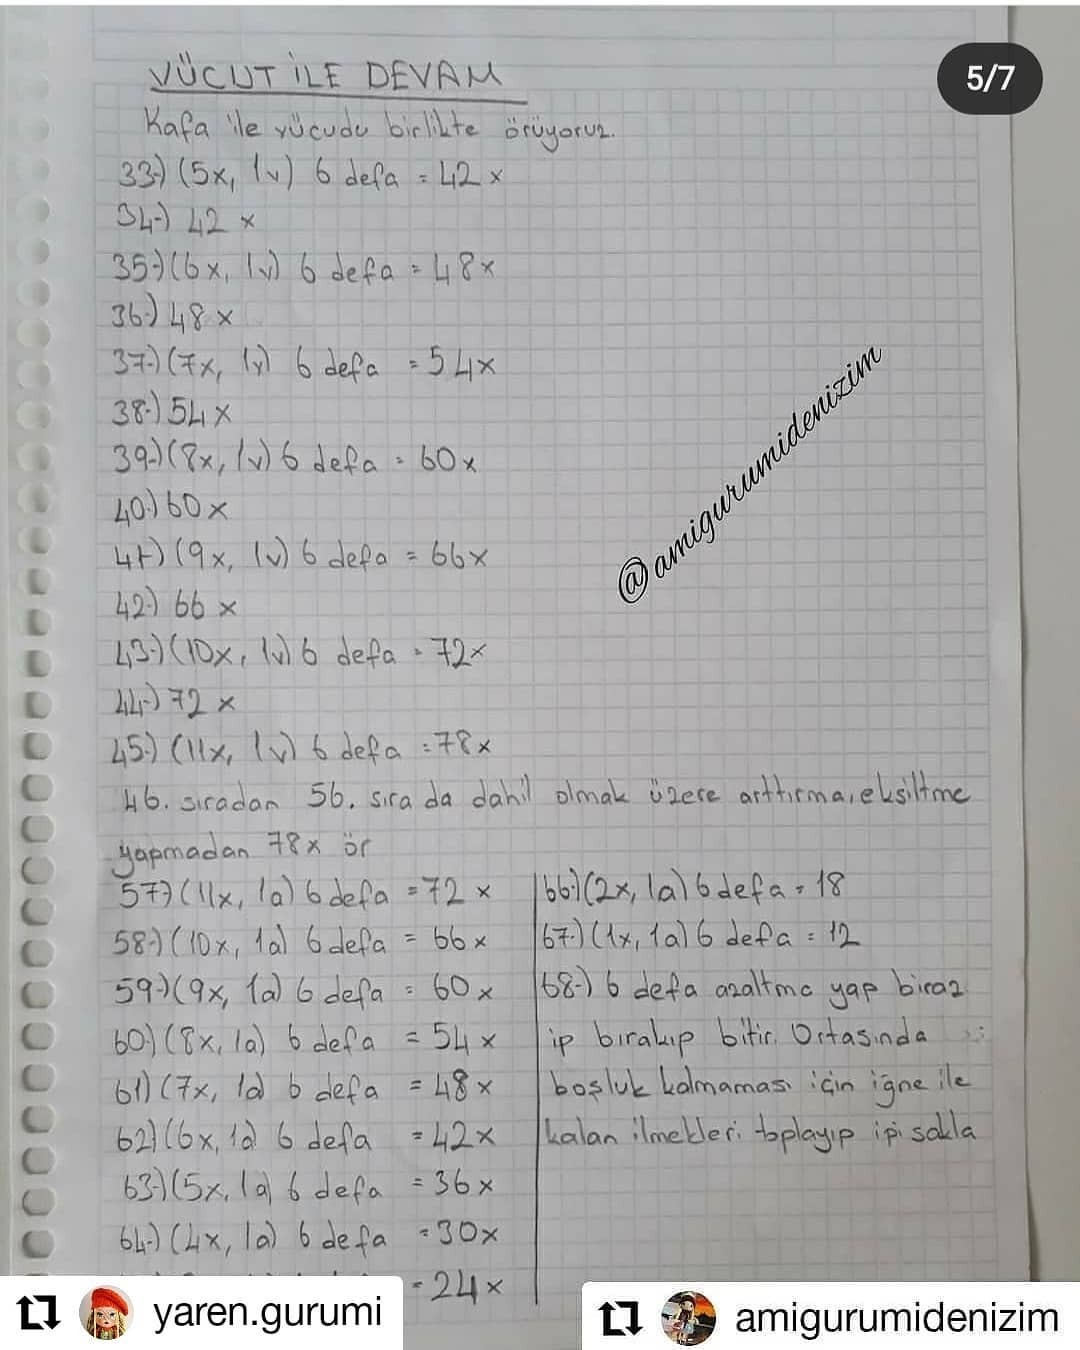 5/7
VÜCUT İLE DEVAM
Kafa ile vücudu birlikte örüyoruz.
33-) (5x, 1v) 6 defa = 42 x
34-) 42 x
35-) (6x, 1v) 6 defa = 48x
36-) 48 x
37-) (7x, 1v) 6 defa = 54x
38-) 54x
39-) (8x, 1v) 6 defa = 60x
40-) 60x
41-) (9x, 1v) 6 defa = 66x
42-) 66 x
43-) (10x, 1v) 6 defa = 72x
44-) 72 x
45-) (11x, 1v) 6 defa = 78x
46. sıradan 56. sıra da dahil olmak üzere arttırma, eksiltme
yapmadan 78x ör
57-) (11x, 1a) 6 defa = 72 x
58-) (10x, 1a) 6 defa = 66x
59-) (9x, 1a) 6 defa = 60x
60-) (8x, 1a) 6 defa = 54x
61) (7x, 1a) 6 defa = 48x
62) (6x, 1a) 6 defa = 42x
63-) (5x, 1a) 6 defa = 36x
64-) (4x, 1a) 6 defa = 30x
= 24x
66-) (2x, 1a) 6 defa = 18
67-) (1x, 1a) 6 defa = 12
68-) 6 defa azaltma yap biraz
ip bırakıp bitir. Ortasında
boşluk kalmaması için iğne ile
kalan ilmekleri toplayıp ipi sakla
@amigurumidenizim
yaren.gurumi
amigurumidenizim